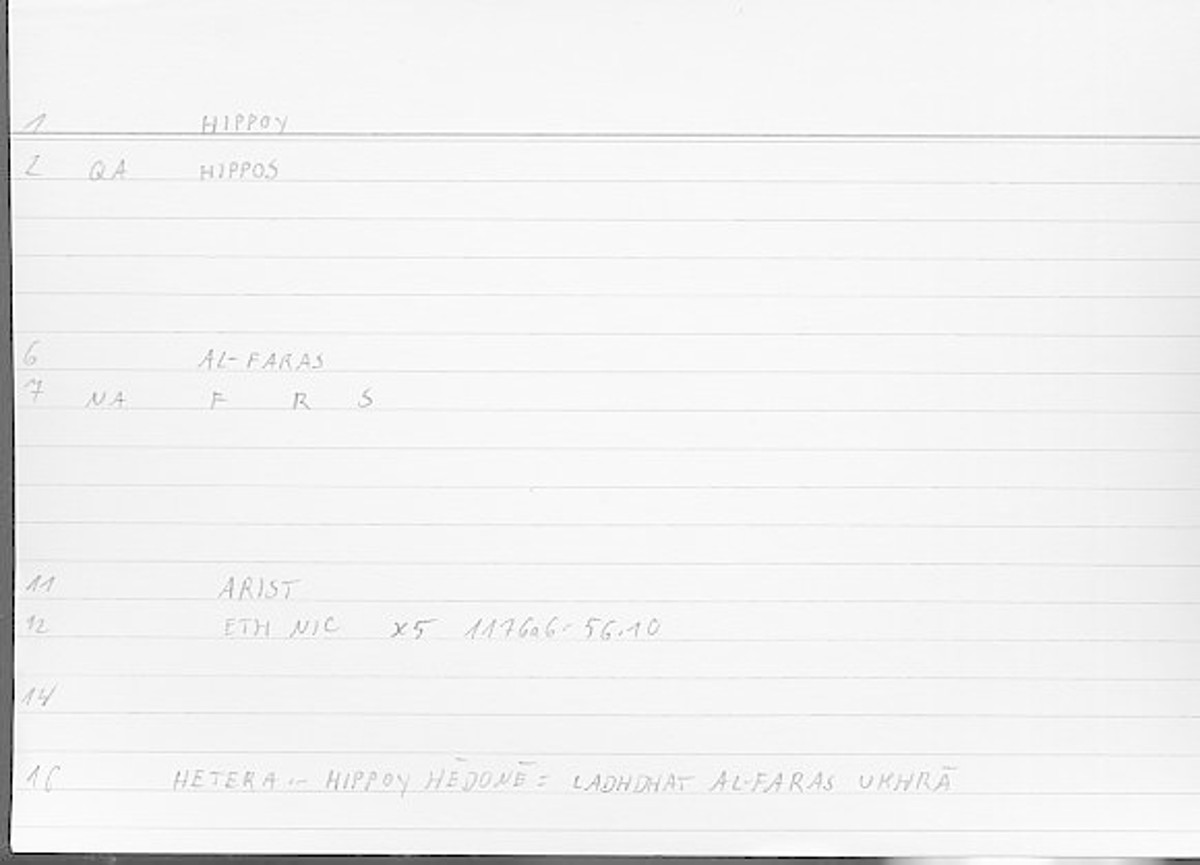 1 HIPPOY
2 QA HIPPOS
6 AL-FARAS
7 NA F R S
11 ARIST
12 ETH NIC X5 1176a6- 56.10
14
16 HETERA .- HIPPOY HĒDONĒ = LADHDHAT AL-FARAS UKHRĀ